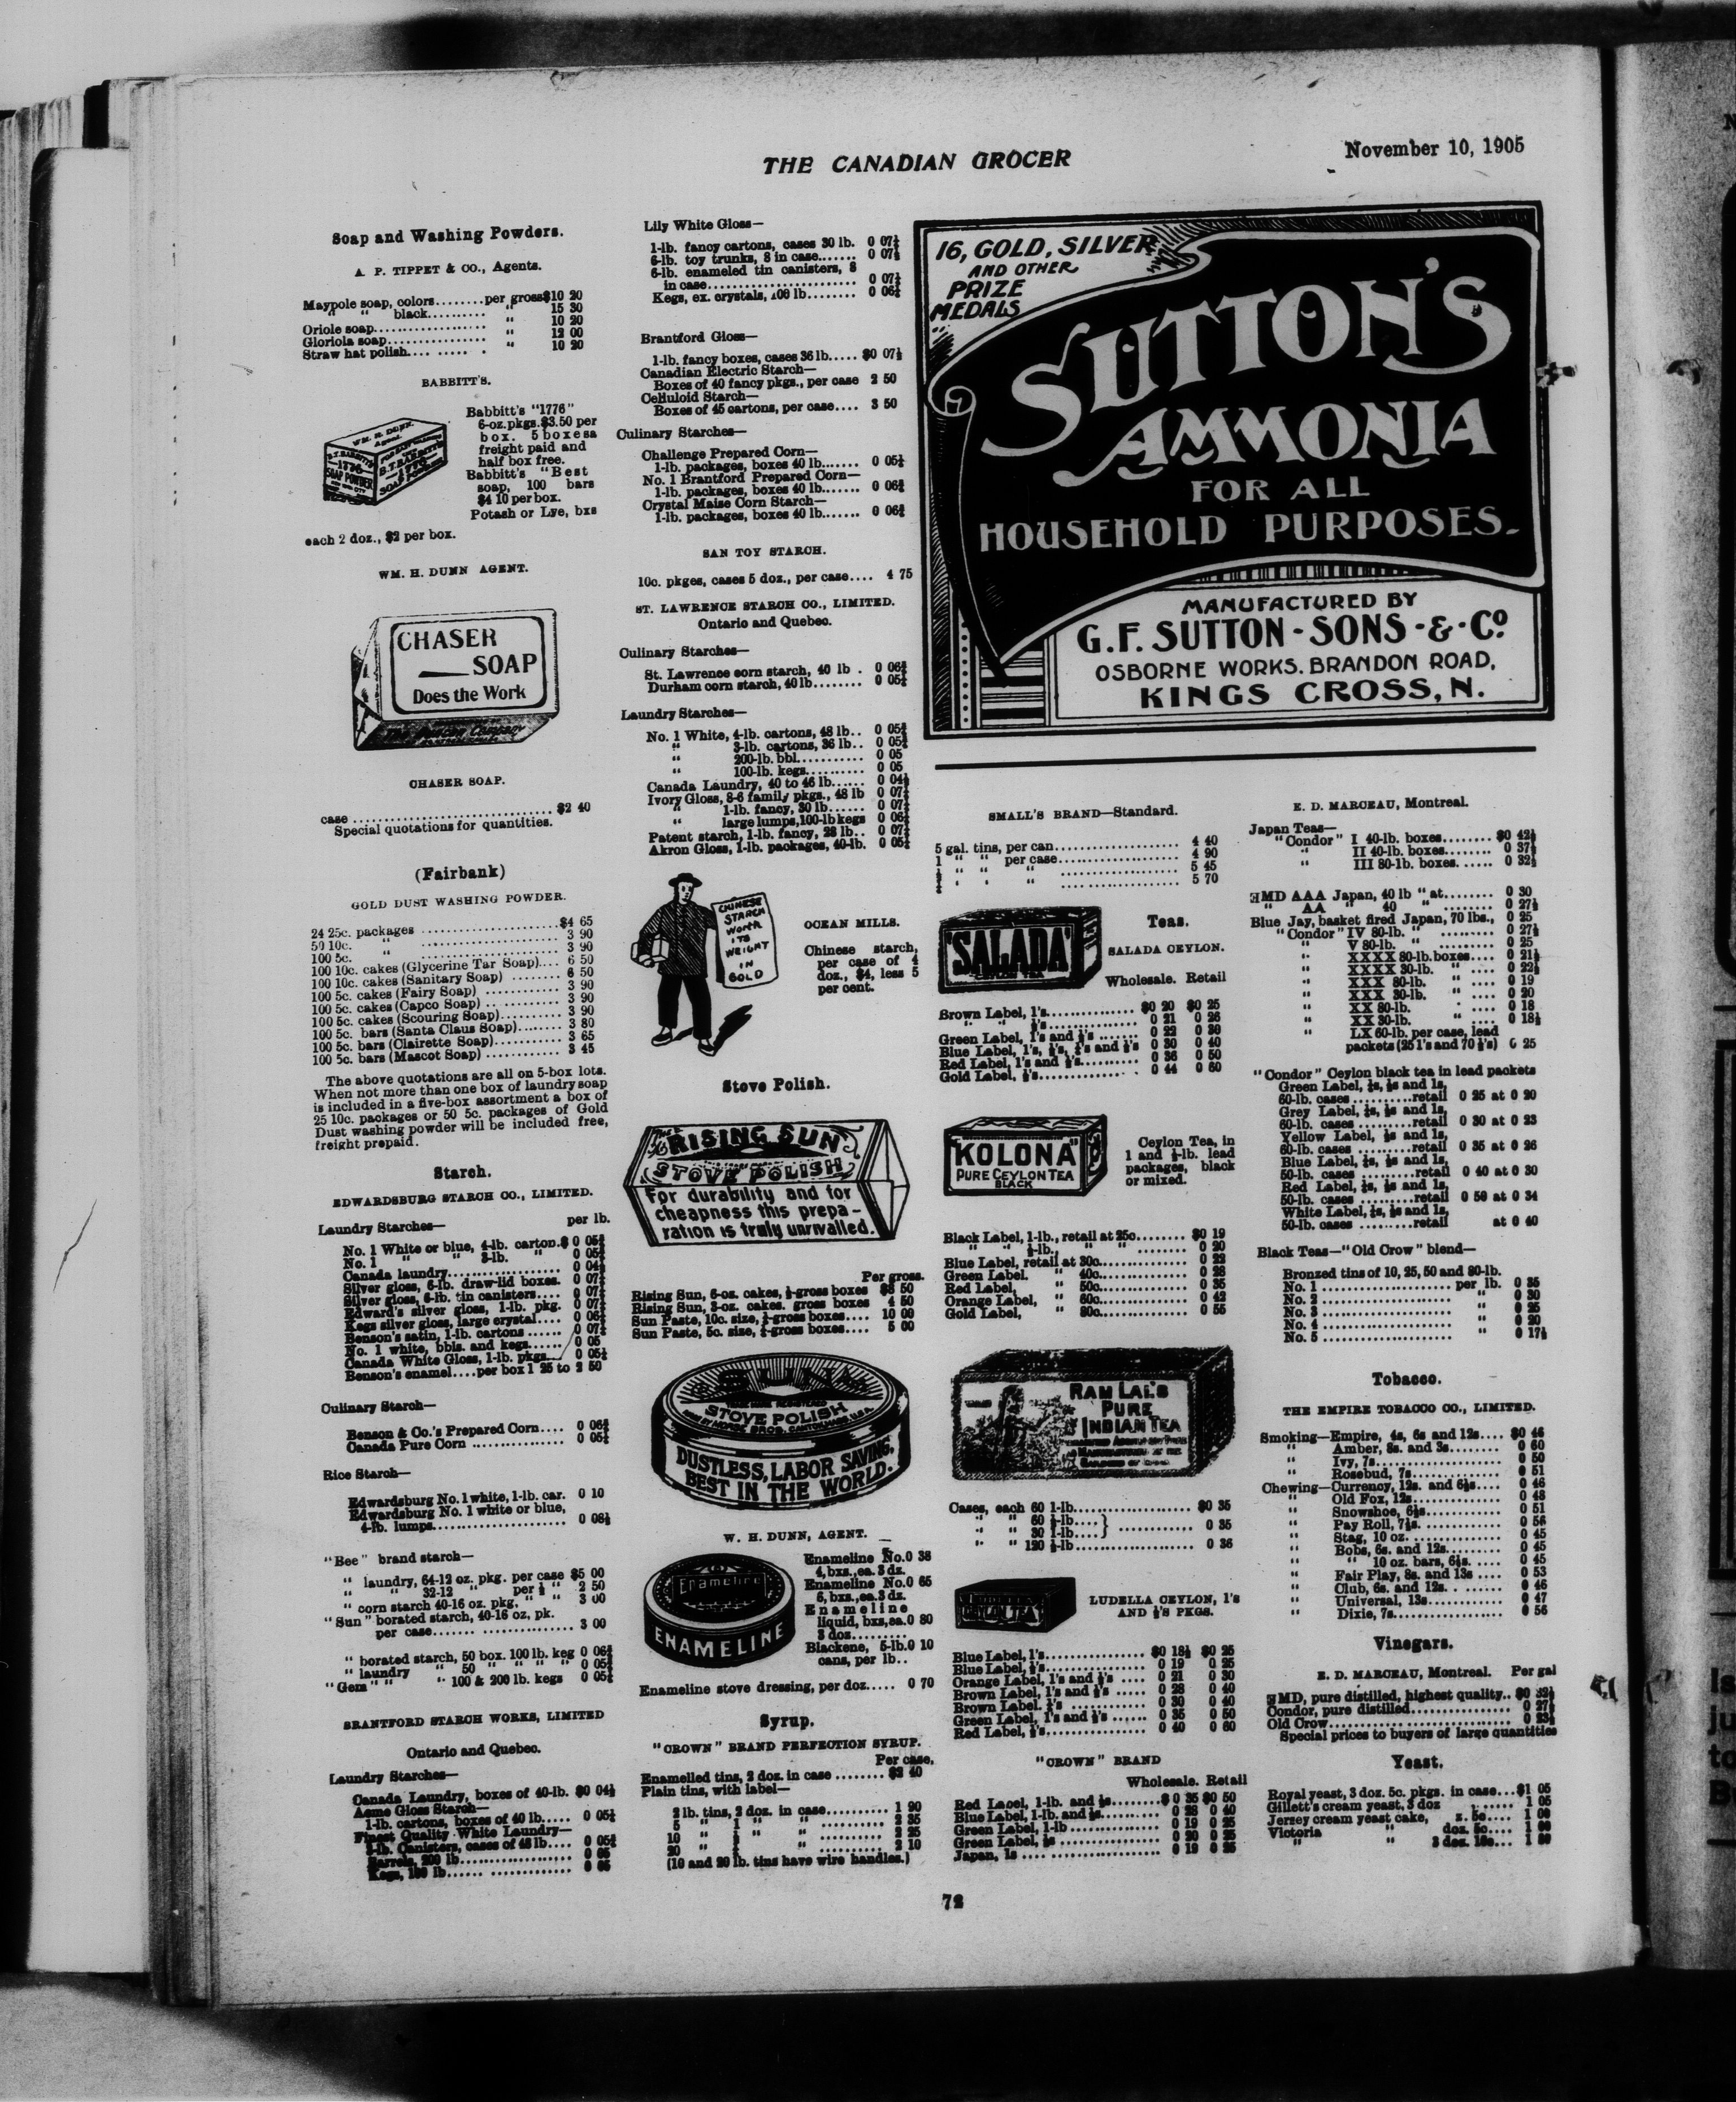 THE CANADIAN GROCER
November 10, 1905
Soap and Washing Powders.
A. P. TIPPET & CO., Agents.
Maypole soap, colors........per gross $10 20
" " black.......... " 15 30
Oriole soap.................. " 10 20
Gloriola soap................ " 12 00
Straw hat polish.... ..... . " 10 20
BABBITT'S.
WM. H. DUNN.
Agent.
B.T. BABBITT'S
1776
SOAP POWDER
B.T. BABBITT'S
1776
SOAP POWDER
Babbitt's "1776"
6-oz.pkgs.$3.50 per
box. 5 boxesa
freight paid and
half box free.
Babbitt's "Best
soap, 100 bars
$4 10 per box.
Potash or Lye, bxs
each 2 doz., $2 per box.
WM. H. DUNN AGENT.
CHASER
SOAP
Does the Work
CHASER SOAP.
case ............................... $2 40
Special quotations for quantities.
(Fairbank)
GOLD DUST WASHING POWDER.
24 25c. packages .......................$4 65
50 10c. " ....................... 3 90
100 5c. " ....................... 3 90
100 10c. cakes (Glycerine Tar Soap).... 6 50
100 10c. cakes (Sanitary Soap) ........ 6 50
100 5c. cakes (Fairy Soap) ............ 3 90
100 5c. cakes (Capco Soap) .. .......... 3 90
100 5c. cakes (Scouring Soap).......... 3 90
100 5c. bars (Santa Claus Soap)........ 3 80
100 5c. bars (Clairette Soap)........... 3 65
100 5c. bars (Mascot Soap) ............ 3 45
The above quotations are all on 5-box lots.
When not more than one box of laundry soap
is included in a five-box assortment a box of
25 10c. packages or 50 5c. packages of Gold
Dust washing powder will be included free,
freight prepaid.
Starch.
EDWARDSBURG STARCH CO., LIMITED.
Laundry Starches— per lb.
No. 1 White or blue, 4-lb. carton.$
No. 1 " " 3-lb. "
Canada laundry....................
Silver gloss, 6-lb. draw-lid boxes.
Silver gloss, 6-lb. tin canisters....
Edward's silver gloss, 1-lb. pkg.
Kegs silver gloss, large crystal....
Benson's satin, 1-lb. cartons ......
No. 1 white, bbls. and kegs...... 0 05
Canada White Gloss, 1-lb. pkgs...
Benson's enamel....per box 1 25 to 2 50
Culinary Starch—
Benson & Co.'s Prepared Corn....
Canada Pure Corn ................
Rice Starch—
Edwardsburg No. 1 white, 1-lb. car. 0 10
Edwardsburg No. 1 white or blue,
4-lb. lumps...................... 0 08½
"Bee" brand starch—
" laundry, 64-12 oz. pkg. per case $5 00
" " 32-12 " per ½ " 2 50
" corn starch 40-16 oz. pkg. " " 3 00
"Sun" borated starch, 40-16 oz, pk.
per case....... ............... 3 00
" borated starch, 50 box. 100 lb. keg
" laundry " 50 " " "
"Gem" " " 100 & 200 lb. kegs
BRANTFORD STARCH WORKS, LIMITED
Ontario and Quebec.
Laundry Starches—
Canada Laundry, boxes of 40-lb. $0 04½
Acme Gloss Starch—
1-lb. cartons, boxes of 40 lb.....
Finest Quality White Laundry—
3-lb. Canisters, cases of 48 lb....
Barrels, 200 lb.................. 0 05
Kegs, 100 lb...... .............. 0 05
Lily White Gloss—
1-lb. fancy cartons, cases 30 lb.
6-lb. toy trunks, 8 in case.......
6-lb. enameled tin canisters, 8
in case.........................
Kegs, ex. crystals, 100 lb........
Brantford Gloss—
1-lb. fancy boxes, cases 36 lb..... $0 07½
Canadian Electric Starch—
Boxes of 40 fancy pkgs., per case 2 50
Celluloid Starch—
Boxes of 45 cartons, per case.... 3 50
Culinary Starches—
Challenge Prepared Corn—
1-lb. packages, boxes 40 lb.......
No. 1 Brantford Prepared Corn—
1-lb. packages, boxes 40 lb.......
Crystal Maize Corn Starch—
1-lb. packages, boxes 40 lb.......
SAN TOY STARCH.
10c. pkges, cases 5 doz., per case.... 4 75
ST. LAWRENCE STARCH CO., LIMITED.
Ontario and Quebec.
Culinary Starches—
St. Lawrence corn starch, 40 lb .
Durham corn starch, 40 lb........
Laundry Starches—
No. 1 White, 4-lb. cartons, 48 lb..
" 3-lb. cartons, 36 lb..
" 200-lb. bbl........... 0 05
" 100-lb. kegs.......... 0 05
Canada Laundry, 40 to 46 lb......
Ivory Gloss, 8-6 family pkgs., 48 lb
" 1-lb. fancy, 30 lb......
" large lumps, 100-lb kegs
Patent starch, 1-lb. fancy, 28 lb..
Akron Gloss, 1-lb. packages, 40-lb.
CHINESE
STARCH
WORTH
ITS
WEIGHT
IN
GOLD
OCEAN MILLS.
Chinese starch,
per case of 4
doz., $4, less 5
per cent.
Stove Polish.
RISING SUN
STOVE POLISH
For durability and for
cheapness this prepa-
ration is truly unrivalled.
Per gross.
Rising Sun, 6-oz. cakes, ½-gross boxes $8 50
Rising Sun, 3-oz. cakes. gross boxes 4 50
Sun Paste, 10c. size, ¼-gross boxes.... 10 00
Sun Paste, 5c. size, ¼-gross boxes.... 5 00
SUN
STOVE POLISH
MORSE BROS. CANTON, MASS. U.S.A.
DUSTLESS, LABOR SAVING,
BEST IN THE WORLD.
W. H. DUNN, AGENT.
Enameline
ENAMELINE
Enameline No. 0 38
4, bxs., ea. 3 dz.
Enameline No. 0 65
6, bxs., ea. 3 dz.
Enameline
liquid, bxs, ea. 0 80
3 doz.........
Blackene, 5-lb. 0 10
cans, per lb..
Enameline stove dressing, per doz..... 0 70
Syrup.
"CROWN" BRAND PERFECTION SYRUP.
Per case.
Enamelled tins, 2 doz. in case ........ $2 40
Plain tins, with label—
2 lb. tins, 2 doz. in case.......... 1 90
5 " 1 " " .......... 2 35
10 " " " .......... 2 25
20 " " .......... 2 10
(10 and 20 lb. tins have wire handles.)
16, GOLD, SILVER
AND OTHER
PRIZE
MEDALS
SUTTON'S
AMMONIA
FOR ALL
HOUSEHOLD PURPOSES.
MANUFACTURED BY
G.F. SUTTON-SONS-&-Co.
OSBORNE WORKS. BRANDON ROAD,
KINGS CROSS, N.
SMALL'S BRAND—Standard.
5 gal. tins, per can..................... 4 40
1 " " per case..................... 4 90
" " " ..................... 5 45
" " " ..................... 5 70
"SALADA"
CEYLON TEA
Teas.
SALADA CEYLON.
Wholesale. Retail
Brown Label, 1's................ $0 20 $0 25
" " ½'s................ 0 21 0 26
Green Label, 1's and ½'s ....... 0 22 0 30
Blue Label, 1's, ½'s, ¼'s and ⅛'s 0 30 0 40
Red Label, 1's and ½'s.......... 0 36 0 50
Gold Label, ½'s................. 0 44 0 60
"KOLONA"
PURE CEYLON TEA
BLACK
Ceylon Tea, in
1 and ½-lb. lead
packages, black
or mixed.
Black Label, 1-lb., retail at 25c........ $0 19
" " ½-lb., " " ........ 0 20
Blue Label, retail at 30c.............. 0 22
Green Label. " 40c.............. 0 28
Red Label, " 50c.............. 0 35
Orange Label, " 60c.............. 0 42
Gold Label, " 80c.............. 0 55
RAM LAL'S
PURE
INDIAN TEA
Cases, each 60 1-lb.................... $0 35
" " 60 ½-lb....}
" " 30 1-lb....} ............ 0 35
" " 120 ½-lb.................... 0 36
CEYLON TEA
LUDELLA CEYLON, 1's
AND ½'s PKGS.
Blue Label, 1's................. $0 18½ $0 25
Blue Label, ½'s................. 0 19 0 25
Orange Label, 1's and ½'s .... 0 21 0 30
Brown Label, 1's and ½'s ..... 0 28 0 40
Brown Label, ½'s .............. 0 30 0 40
Green Label, 1's and ½'s ...... 0 35 0 50
Red Label, ½'s................. 0 40 0 60
"CROWN" BRAND
Wholesale. Retail
Red Label, 1-lb. and ½s........$0 35 $0 50
Blue Label, 1-lb. and ½s.......... 0 28 0 40
Green Label, 1-lb ................ 0 19 0 25
Green Label, ½s .................. 0 20 0 25
Japan, 1s ........................ 0 19 0 25
E. D. MARCEAU, Montreal.
Japan Teas—
"Condor" I 40-lb. boxes........ $0 42½
" II 40-lb. boxes........ 0 37½
" III 80-lb. boxes. ..... 0 32½
EMD AAA Japan, 40 lb "at........ 0 30
" AA " 40 " ........ 0 27½
Blue Jay, basket fired Japan, 70 lbs., 0 25
"Condor" IV 80-lb. " ......... 0 27½
" V 80-lb. " ......... 0 25
" XXXX 80-lb. boxes.... 0 21½
" XXXX 30-lb. " .... 0 22½
" XXX 80-lb. " .... 0 19
" XXX 30-lb. " .... 0 20
" XX 80-lb. " .... 0 18
" XX 30-lb. " .... 0 18½
" LX 60-lb. per case, lead
packets (25 1's and 70 ½'s) 0 25
"Condor" Ceylon black tea in lead packets
Green Label, ¼s, ½s and 1s,
60-lb. cases ..........retail 0 25 at 0 20
Grey Label, ¼s, ½s and 1s,
60-lb. cases .........retail 0 30 at 0 23
Yellow Label, ½s and 1s,
60-lb. cases .........retail 0 35 at 0 26
Blue Label, ¼s, ½s and 1s,
50-lb. cases .........retail 0 40 at 0 30
Red Label, ¼s, ½s and 1s,
50-lb. cases .........retail 0 50 at 0 34
White Label, ¼s, ½s and 1s,
50-lb. cases .........retail at 0 40
Black Teas—"Old Crow" blend—
Bronzed tins of 10, 25, 50 and 80-lb.
No. 1 ...................... per lb. 0 35
No. 2 ...................... " 0 30
No. 3 ...................... " 0 25
No. 4 ...................... " 0 20
No. 5 ...................... " 0 17½
Tobacco.
THE EMPIRE TOBACCO CO., LIMITED.
Smoking—Empire, 4s, 6s and 12s.... $0 46
" Amber, 8s. and 3s......... 0 60
" Ivy, 7s.................... 0 50
" Rosebud, 7s............... 0 51
Chewing—Currency, 12s. and 6½s.... 0 46
" Old Fox, 12s.............. 0 48
" Snowshoe, 6½s............ 0 51
" Pay Roll, 7½s. ............ 0 56
" Stag, 10 oz. .............. 0 45
" Bobs, 6s. and 12s......... 0 45
" " 10 oz. bars, 6½s. .... 0 45
" Fair Play, 8s. and 13s .... 0 53
" Club, 6s. and 12s. ....... 0 46
" Universal, 13s............ 0 47
" Dixie, 7s.................. 0 56
Vinegars.
E. D. MARCEAU, Montreal. Per gal
EMD, pure distilled, highest quality.. $0 32½
Condor, pure distilled............... 0 27½
Old Crow............................. 0 23½
Special prices to buyers of large quantities
Yeast.
Royal yeast, 3 doz. 5c. pkgs. in case...$1 05
Gillett's cream yeast, 3 doz ....... 1 05
Jersey cream yeast cake, z. 5c.... 1 00
Victoria " doz. 5c.... 1 00
" " 3 doz. 10c... 1 80
72